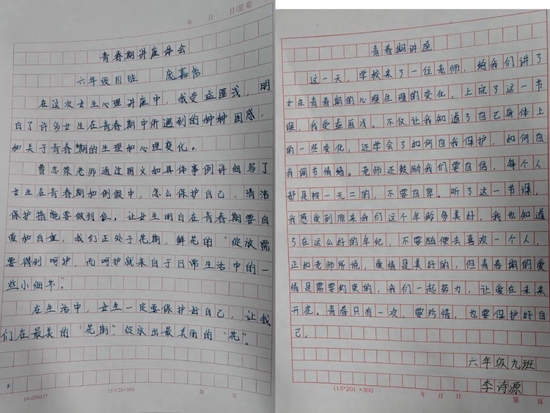 年 月 日(星期
青春期讲座体会
六年级四班
在这次女生心理讲座中,我受益匪浅,明
白了许多女生在青春期中所遇到的种种困惑,
如关于青春期的生理和心理变化。
曹志荣老师通过图文和具体事例讲细写了
女生在青春期如例假中,怎么保护自己,清洁
保护措施要做到位。让女生明白在青春期要自
爱和自重,我们正处于花期,鲜花的"绽放需
要得到呵护,而呵护就来自于日常生活中的一
些小细节"。
在生活中,女生一定要保护好自己,让我
们在最美的"花期"绽放出最美丽的"花"。
15×20=300
第 页
青春期讲座
这一天,学校来了一位老师,给我们讲了
女生在青春期的心理生理的变化,上完了这一节
课,我受益匪浅。不仅让我知道了自己身体上
的一些变化,还学会了如何自我保护,如何自
我调节情绪。老师还鼓励我们要自信,每个人
都是独一无二的,不要自卑。听了这一节课,
我感受到原来我们这个年龄多美好,我也知道
了在这么好的年纪,不要随便去喜欢一个人,
正如老师所说,爱情是美好的,但青春期的爱
情是需要约束的,我们一起努力,让爱在未来
开花。青春只有一次,要珍惜,也要保护好自
己。
六年级九班
李诗源
(15*20)=300
年 月 日
第 页